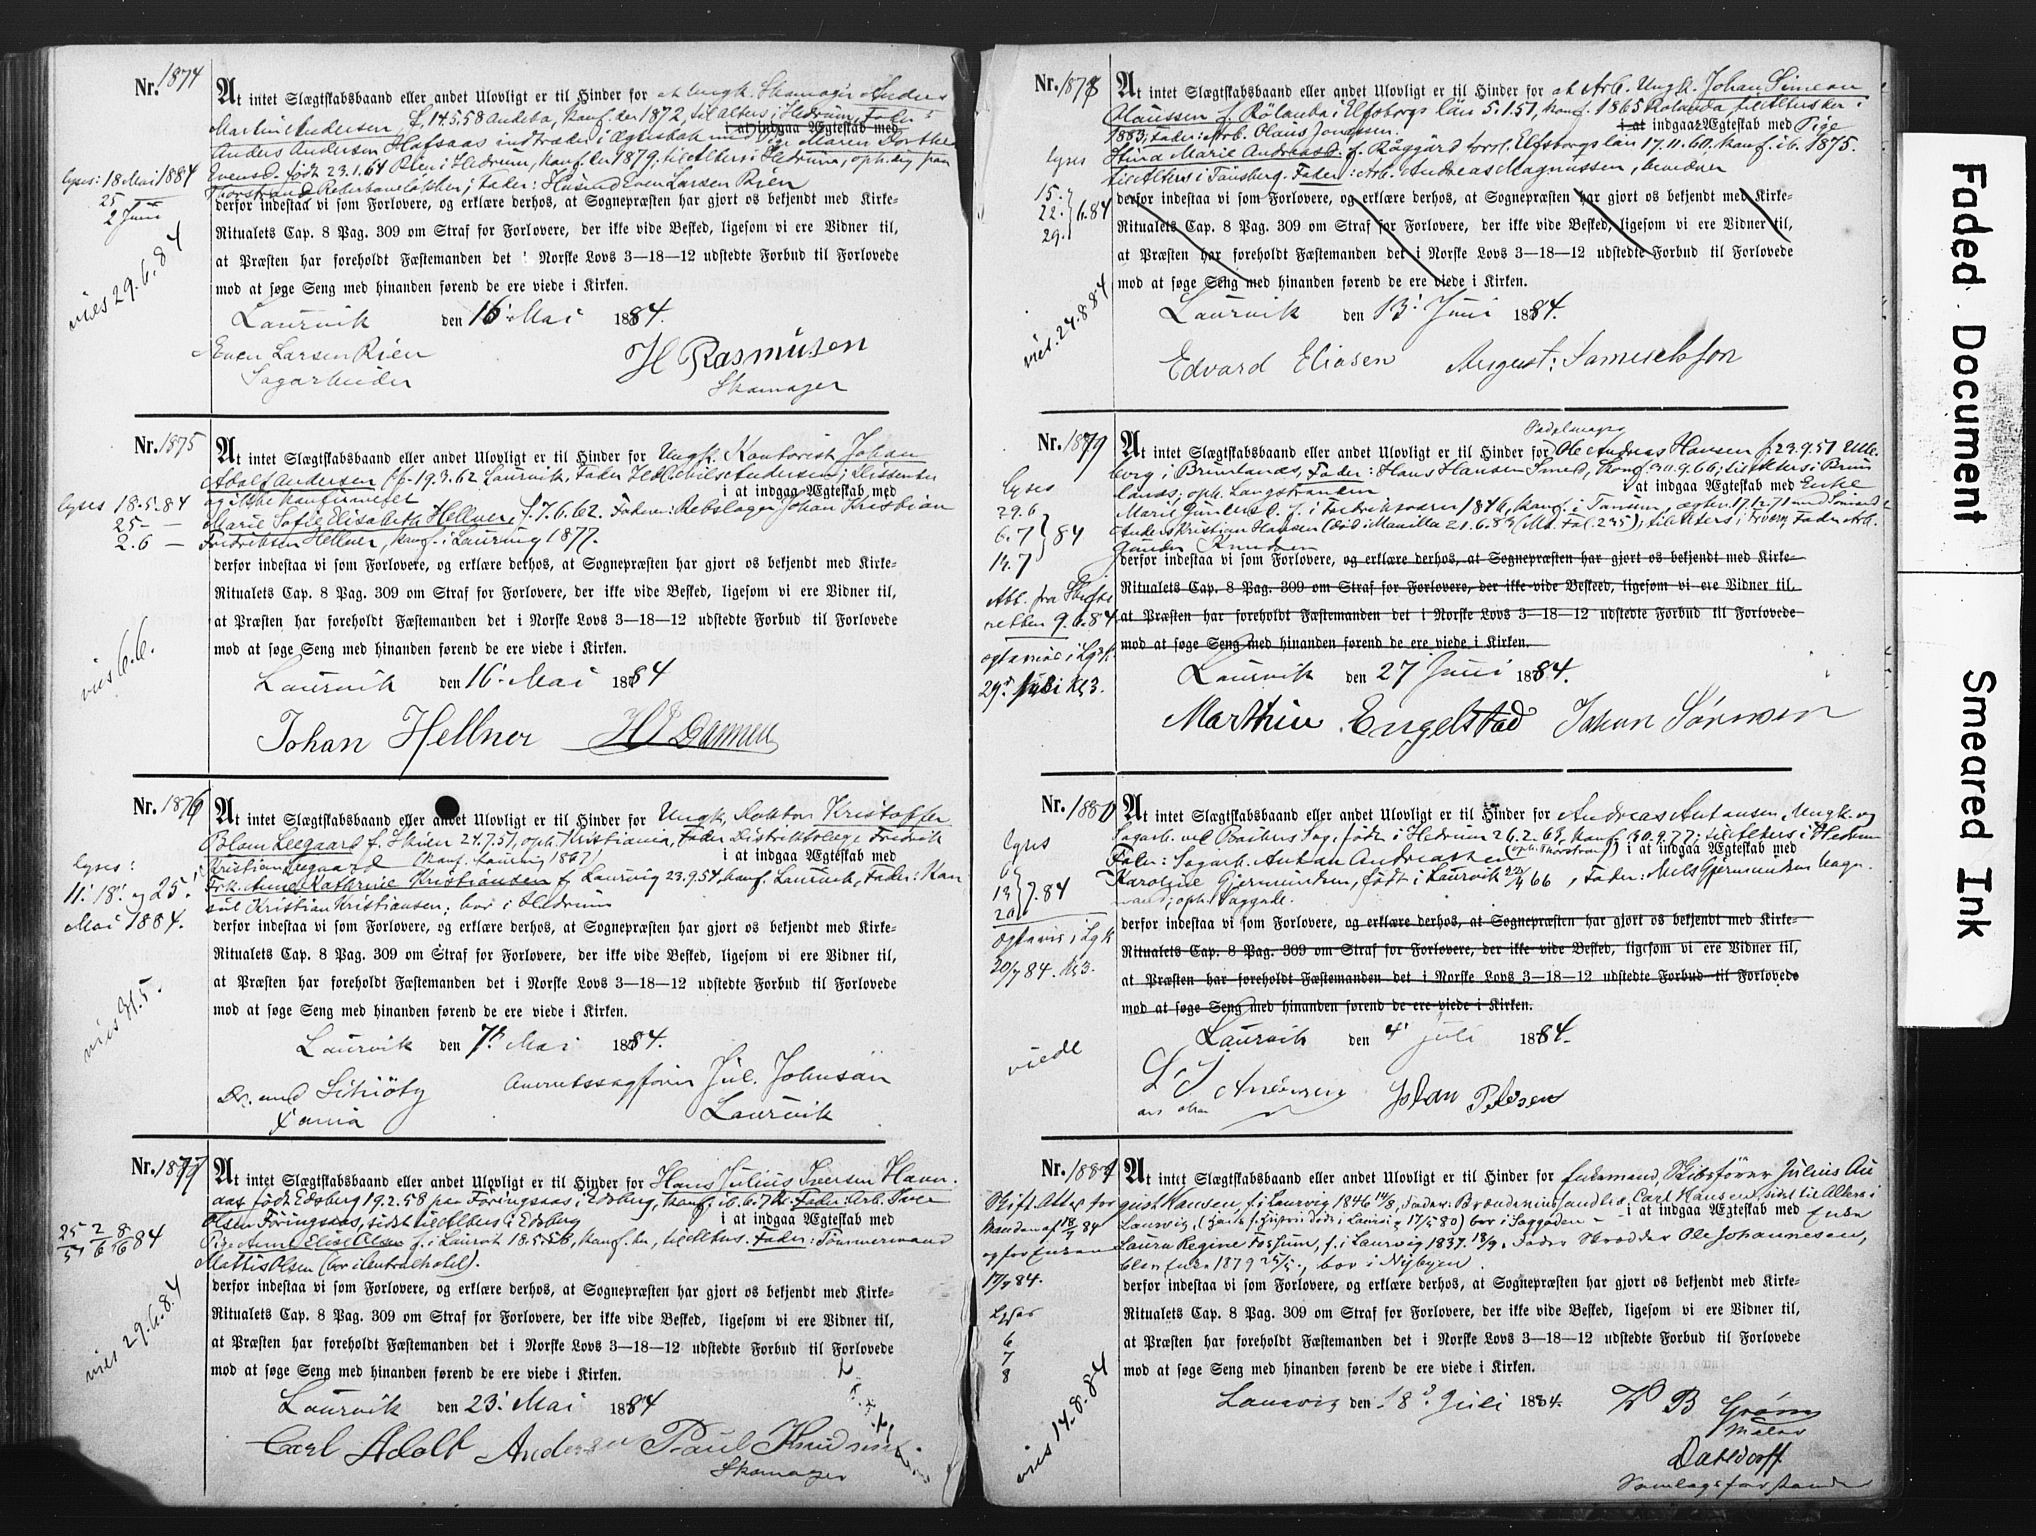 Nr. 1874
At intet Slægtskabsbaand eller andet Ulovligt er til Hinder for at Ungk. Skomager Anders
Martin Andersen f. 14.5.58 konf. her 1872, til alters i Hedrum, Fader
i at indgaa Ægteskab med
Anders Andersen Hafsaas indtræder i Ægteskab med Pige Maren Dorthe
Evensd. født 23.1.64 Rien i Hedrum, konf. her 1879, til Alters i Hedrum, oph. sig paa
Thorstrand Fader: Husmd Even Larsen Rien
lyses: 18 Mai 1884
25
2 Juni
vies 29.6.84
derfor indestaa vi som Forlovere, og erklære derhos, at Sognepræsten har gjort os bekjendt med Kirke-
Ritualets Cap. 8 Pag. 309 om Straf for Forlovere, der ikke vide Besked, ligesom vi ere Vidner til,
at Præsten har foreholdt Fæstemanden det i Norske Lovs 3—18—12 udstedte Forbud til Forlovede
mod at søge Seng med hinanden førend de ere viede i Kirken.
Laurvik den 16' Mai 1884.
Even Larsen Rien H Rasmusen
Sagarbeider Skomager
Nr. 1875
At intet Slægtskabsbaand eller andet Ulovligt er til Hinder for Ungk. Kontorist Johan
Adolf Andersen f. 19.3.62 Laurvik, Fader Andersen; Dissenter
og ikke konfirmeret
i at indgaa Ægteskab med
Marie Sofie Elisabeth Hellner, f. 7.6.62. Fader: Rebslager Johan Kristian
Fredriksen Hellner, konf. i Laurvig 1877.
lyses 18.5.84
25 — —
2.6 —
vies 6.6.
derfor indestaa vi som Forlovere, og erklære derhos, at Sognepræsten har gjort os bekjendt med Kirke-
Ritualets Cap. 8 Pag. 309 om Straf for Forlovere, der ikke vide Besked, ligesom vi ere Vidner til,
at Præsten har foreholdt Fæstemanden det i Norske Lovs 3—18—12 udstedte Forbud til Forlovede
mod at søge Seng med hinanden førend de ere viede i Kirken.
Laurvik den 16' Mai 1884
Johan Hellner
Nr. 1876
At intet Slægtskabsbaand eller andet Ulovligt er til Hinder for Ungk. Doktor Kristoffer
Blom Leegaard f. Skien 24.7.51, oph. Kristiania, Fader Distriktslæge Fredrik
Kristian Leegaard (konf. Laurvig 1867)
i at indgaa Ægteskab med
Frk. Anne Kathrine Kristiansen f. Laurvig 23.9.54, konf. Laurvik, Fader: Kon
sul Kristian Kristiansen; bor i Hedrum
lyses:
11' 18' og 25'
Mai 1884.
vies 31.5.
derfor indestaa vi som Forlovere, og erklære derhos, at Sognepræsten har gjort os bekjendt med Kirke-
Ritualets Cap. 8 Pag. 309 om Straf for Forlovere, der ikke vide Besked, ligesom vi ere Vidner til,
at Præsten har foreholdt Fæstemanden det i Norske Lovs 3—18—12 udstedte Forbud til Forlovede
mod at søge Seng med hinanden førend de ere viede i Kirken.
Laurvik den 7' Mai 1884.
Dr. med Schiötz Overretssagfører Jul. Johnsen
Laurvik
Nr. 1877
At intet Slægtskabsbaand eller andet Ulovligt er til Hinder for Hans Julius Iversen Havn-
aas født Edsberg 19.2.58 paa Föringsaas i Edsberg, konf. ib. Fader: Arb. Iver
Olsen Föringsaas, sidst til Alters i Edsberg
i at indgaa Ægteskab med
Pige Anne Elise Olsen f. i Laurvik 18.5.58, konf. her, til Alters. Fader: Tömmermand
Mathis Olsen (bor i Centralhotel).
25/5 2/6 8/6 84
vies 29.6.84
derfor indestaa vi som Forlovere, og erklære derhos, at Sognepræsten har gjort os bekjendt med Kirke-
Ritualets Cap. 8 Pag. 309 om Straf for Forlovere, der ikke vide Besked, ligesom vi ere Vidner til,
at Præsten har foreholdt Fæstemanden det i Norske Lovs 3—18—12 udstedte Forbud til Forlovede
mod at søge Seng med hinanden førend de ere viede i Kirken.
Laurvik den 23' Mai 1884
Carl Adolf Andersen Paul Knudsen
Skomager
Nr. 1878
At intet Slægtskabsbaand eller andet Ulovligt er til Hinder for at Arb. Ungk. Johan Simeon
Olaussen f. Rölanda i Elfsborgs län 5.1.51, konf. 1865 Rölanda, til Alters her i
1883, Fader: Arb. Olaus Jonassen.
i at indgaa Ægteskab med Pige
Stina Marie Andreasd. f. Råggärd Elfsborgs län 17.11.60, konf. ib. 1875.
til Alters i Tönsberg. Fader: Arb. Andreas Magnussen,
lyses
15.
22. 6.84
29.
vies. 24.8.84
derfor indestaa vi som Forlovere, og erklære derhos, at Sognepræsten har gjort os bekjendt med Kirke-
Ritualets Cap. 8 Pag. 309 om Straf for Forlovere, der ikke vide Besked, ligesom vi ere Vidner til,
at Præsten har foreholdt Fæstemanden det i Norske Lovs 3—18—12 udstedte Forbud til Forlovede
mod at søge Seng med hinanden førend de ere viede i Kirken.
Laurvik den 13' Juni 1884.
Edvard Eliasen August: Samuelsson
Nr. 1879
At intet Slægtskabsbaand eller andet Ulovligt er til Hinder for Ole Andreas Hansen f 23.9.51 Ulle-
berg i Brunlanæs, Fader: Hans Hansen Smed, konf. 30.9.66; til Alters i Brun
lanæs; oph. Langestranden
i at indgaa Ægteskab med Enke
Marie Gundersd. f. i Fredriksværn 1846, konf. i Tanum, ægtev. 17.12.71 med Sömand
Anders Kristian Hansen (död i Manilla 21.6.83); til Alters i Fader Arb.
Gunder Knudsen
lyses
29.6
6.7 84
14.7
Att. fra Skifte
retten 9.6.84
ogtavie i Lgk.
29' Juli Kl 3.
derfor indestaa vi som Forlovere, og erklære derhos, at Sognepræsten har gjort os bekjendt med Kirke-
Ritualets Cap. 8 Pag. 309 om Straf for Forlovere, der ikke vide Besked, ligesom vi ere Vidner til,
at Præsten har foreholdt Fæstemanden det i Norske Lovs 3—18—12 udstedte Forbud til Forlovede
mod at søge Seng med hinanden førend de ere viede i Kirken.
Laurvik den 27 Juni 1884.
Marthin Engelstad Johan Sörensen
Nr. 1880
At intet Slægtskabsbaand eller andet Ulovligt er til Hinder for Andreas Antonsen, Ungk. og
Sagarb. ved Sag, født i Hedrum 26.2.63, konf. 30.9.77; til Alters i Hedrum
Fader: Sagarb. Anton Andreassen (oph. Thorstrand) i at indgaa Ægteskab med
Karoline Gjermundsen, født i Laurvik 22/4 66, Fader: Niels Gjermundsen Vogn-
mand; oph. Saggade.
lyses
6
13 7.84
20
vies i Lgk
20/7 84. Kl 3.
viede
derfor indestaa vi som Forlovere, og erklære derhos, at Sognepræsten har gjort os bekjendt med Kirke-
Ritualets Cap. 8 Pag. 309 om Straf for Forlovere, der ikke vide Besked, ligesom vi ere Vidner til,
at Præsten har foreholdt Fæstemanden det i Norske Lovs 3—18—12 udstedte Forbud til Forlovede
mod at søge Seng med hinanden førend de ere viede i Kirken.
Laurvik den 4' Juli 1884.
Andersen Johan Pedersen
Nr. 1881
At intet Slægtskabsbaand eller andet Ulovligt er til Hinder for Enkemand, Skibsförer Julius Au
gust Hansen, f. i Laurvig 1846 14/8, Fader: Brændevinshandler Carl Hansen, sidst til Alters i
Laurvig, (hans f. Hustru döde i Laurvig 17/5 80) bor i Saggaden - i at indgaa Ægteskab med Enke
Laura Regine Fossum, f. i Laurvig 1837. 18/9. Fader Skrædder Ole Johannesen,
blev Enke 1879 25/5, bor i Nybyen.
Skift. Attest for
Manden af 18/7 84
og for Enken
17/7 84.
Lyses
6
7
8
vies 14.8.84
derfor indestaa vi som Forlovere, og erklære derhos, at Sognepræsten har gjort os bekjendt med Kirke-
Ritualets Cap. 8 Pag. 309 om Straf for Forlovere, der ikke vide Besked, ligesom vi ere Vidner til,
at Præsten har foreholdt Fæstemanden det i Norske Lovs 3—18—12 udstedte Forbud til Forlovede
mod at søge Seng med hinanden førend de ere viede i Kirken.
Laurvig den 18' Juli 1884.
B Gröm
Maler
Dahldorff
Samlagsforstander
Faded Document
Smeared Ink